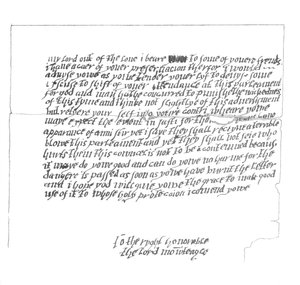 my lord out of the loue i beare to some of youere frends
i haue a caer of youer preseruacion therfor i would
aduyse yowe as yowe tender youer lyf to deuys some
excuse to shift of youer attendance at this parleament
for god and man hath concurred to punishe the wickednes
of this tyme and thinke not slightlye of this aduertisment
but retyere youre self into youre contri wheare yowe
maye expect the euent in safti for
apparance of anni stir yet i saye they shall receyue a terrible
blowe this parleament and yet they shall not seie who
hurts them this councel is not to be contemned because
it maye do yowe good and can do yowe no harme for the
danger is passed as soon as yowe haue burnt the letter
and i hope god will giue yowe the grace to mak good
use of it to whose holy proteccion i comend yowe
To the right honorable
the lord mounteagle